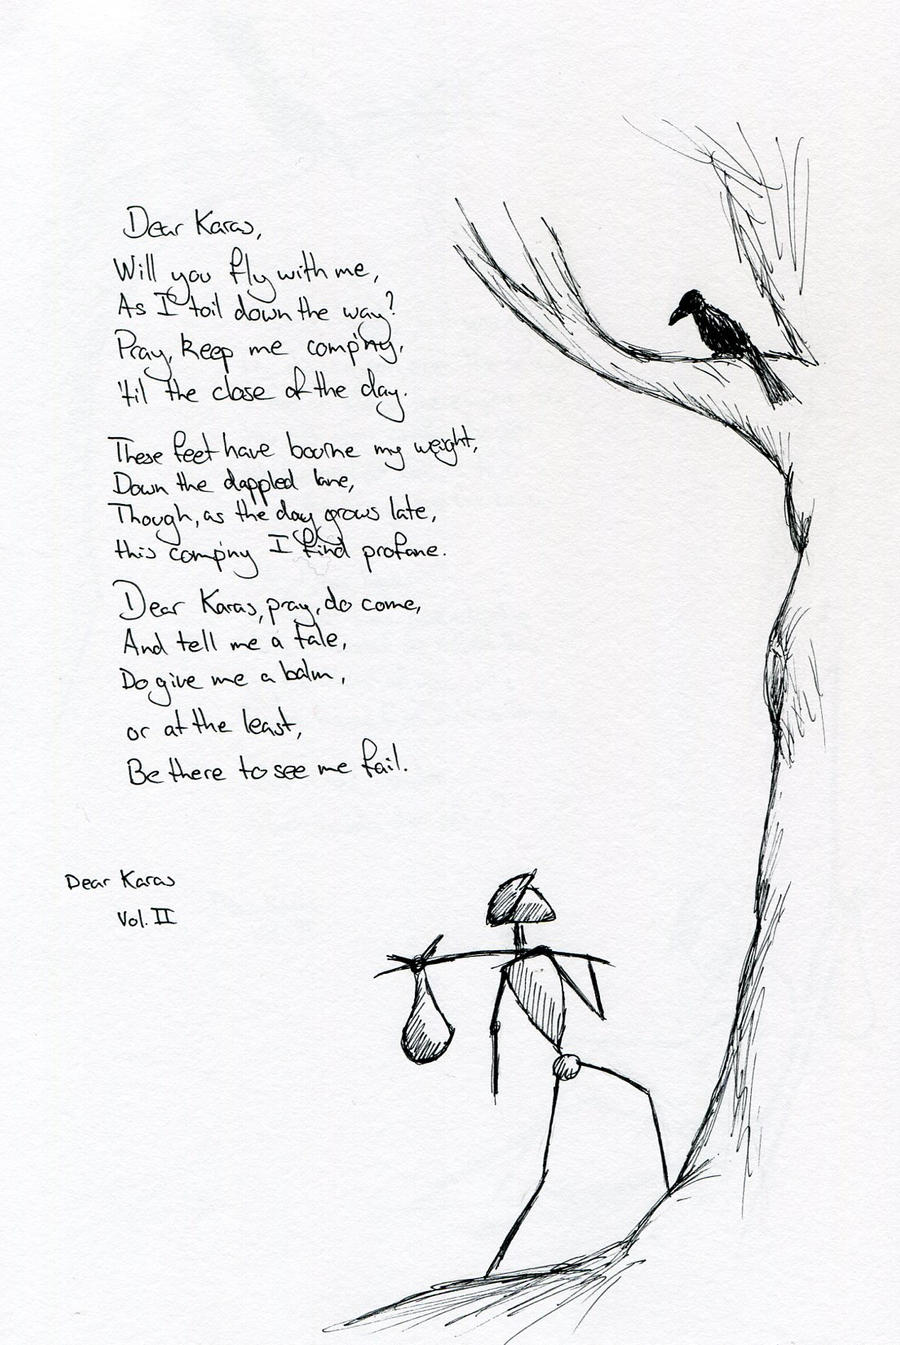 Dear Karas,
Will you fly with me,
As I toil down the way?
Pray, keep me comp'ny,
'til the close of the day.
These feet have bourne my weight,
Down the dappled lane,
Though, as the day grows late,
this comp'ny I find profane.
Dear Karas, pray, do come,
And tell me a tale,
Do give me a balm,
or at the least,
Be there to see me fail.
Dear Karas
Vol. II